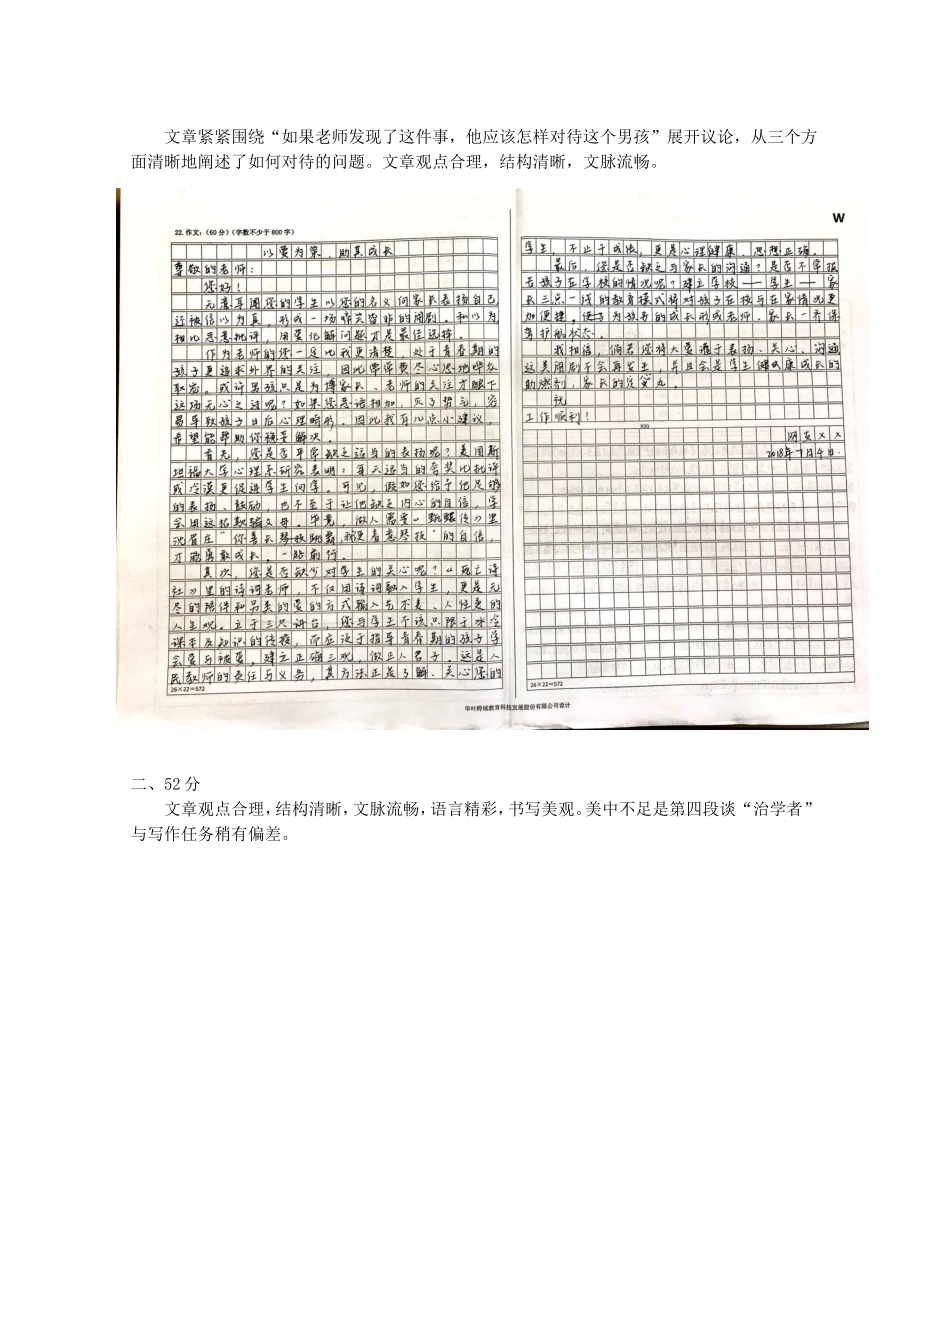 文章紧紧围绕“如果老师发现了这件事，他应该怎样对待这个男孩”展开议论，从三个方
面清晰地阐述了如何对待的问题。文章观点合理，结构清晰，文脉流畅。
22.作文：（60分）（字数不少于800字）
以爱为策，助其成长
尊敬的老师：
您好！
无意耳闻您的学生以您的名义向家长表扬自己
还被信以为真，形成一场啼笑皆非的闹剧。私以为
相比恶意批评，用爱化解问题才是最佳选择。
作为老师的您一定比我更清楚，处于青春期的
孩子更追求外界的关注，因此常常费尽心思地哗众
取宠。或许男孩只是为博家长、老师的关注才眼下
这场无心之过呢？如果您恶语相加，灭了势气，容
易导致孩子日后心理畸形。因此我有几点小建议，
希望能帮助你稳妥解决。
首先，您是否平常缺乏适当的表扬呢？美国斯
坦福大学心理系研究表明：每天适当的夸奖比批评
或冷漠更促进学生向学。可见，假如您给予他足够
的表扬、鼓励，也不至于让他缺乏内心的自信，学
会用这招欺骗父母。毕竟，做人需要《甄嬛传》里
沈眉庄“你善长琴技跳舞，我更看意琴技”的自信，
才能勇敢成长，一路前行。
其次，您是否缺少对学生的关心呢？《死亡诗
社》里的诗词老师，不仅用诗词融入学生，更是无
尽的陪伴和另类的爱的方式输入艺不美、人性美的
人生观。立于三尺讲台，您与学生不该只限于冰冷
课本及知识的传授，而应设于指导青春期的孩子学
会爱与被爱，建立正确三观，做正人君子。这是人
民教师的责任与义务，其方法正是了解、关心您的
26×22＝572
W
学生，不止于成绩，更是心理健康、思想正确。
最后，您是否缺乏与家长的沟通？是否不常报
告孩子在学校的情况呢？建立学校——学生——家
长三点一线的教育模式将对孩子在校与在家情况更
加便捷。便于为孩子的成长形成老师、家长一齐保
驾护航状态。
我相信，倘若您将大爱灌于表扬、关心、沟通
这类闹剧不会再发生，并且会是学生健康成长的
助燃剂，家长的定心丸。
祝
工作顺利！
800
网友××
2018年7月4日.
26×22＝572
华叶跨域教育科技发展股份有限公司设计
二、52分
文章观点合理，结构清晰，文脉流畅，语言精彩，书写美观。美中不足是第四段谈“治学者”
与写作任务稍有偏差。